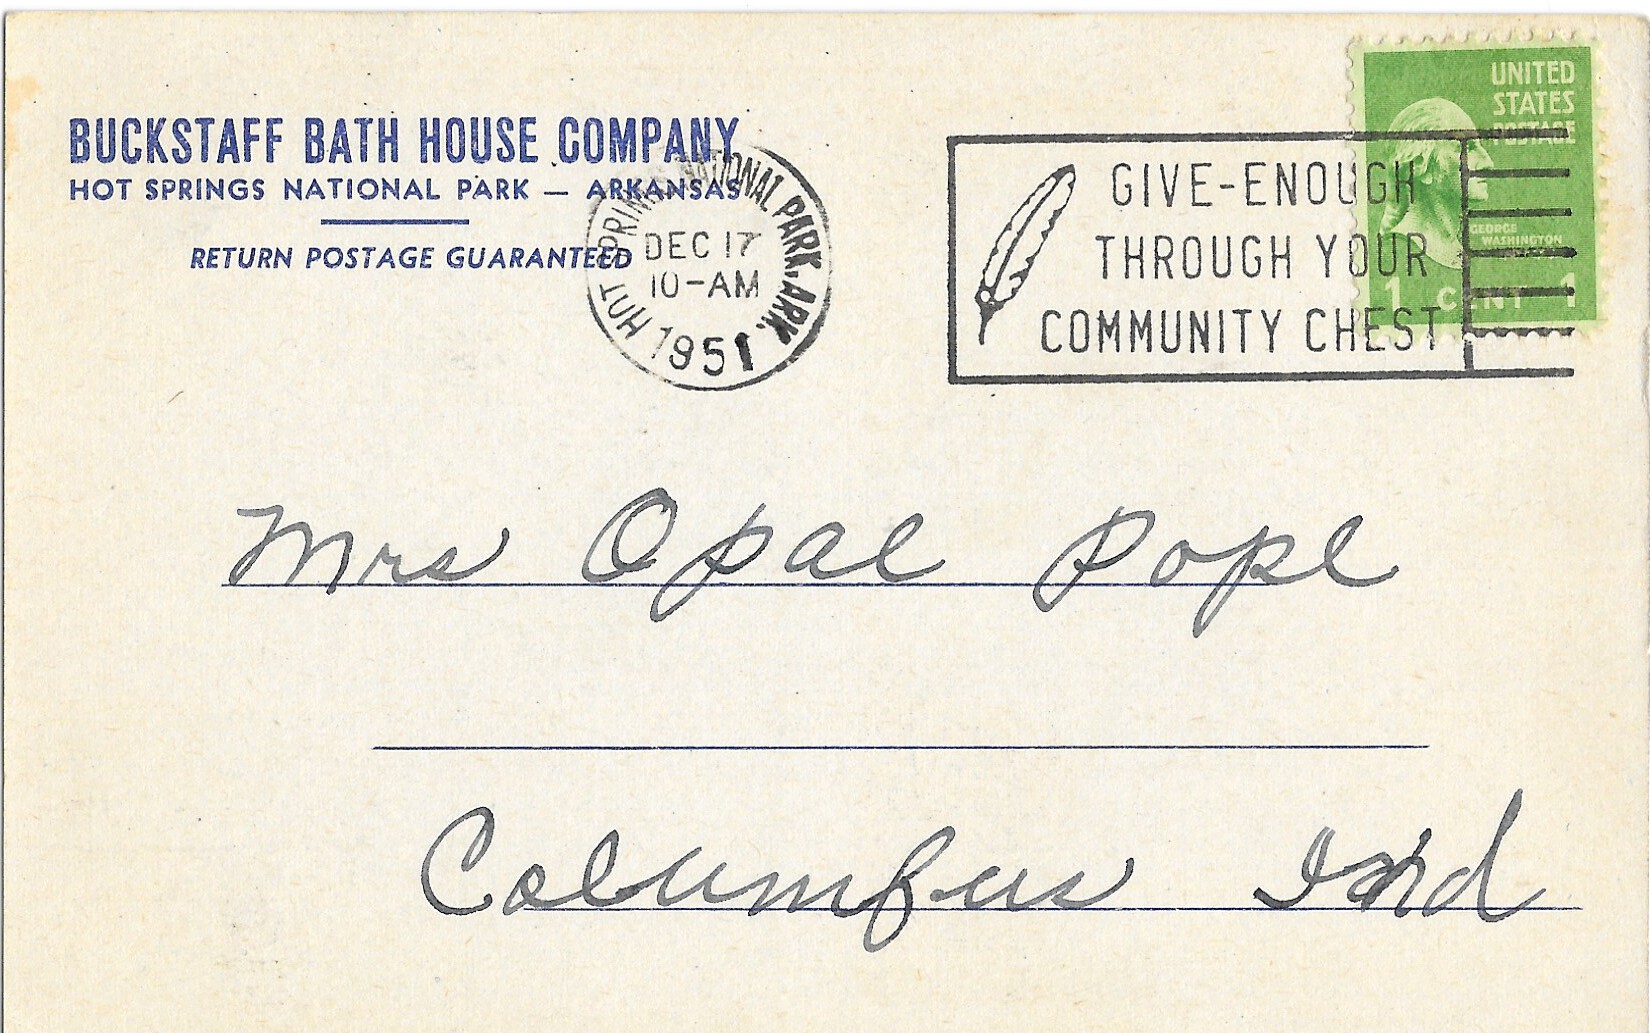 BUCKSTAFF BATH HOUSE COMPANY
HOT SPRINGS NATIONAL PARK — ARKANSAS
RETURN POSTAGE GUARANTEED
HOT SPRINGS NATIONAL PARK, ARK.
DEC 17
10-AM
1951
GIVE-ENOUGH
THROUGH YOUR
COMMUNITY CHEST
UNITED
STATES
POSTAGE
GEORGE
WASHINGTON
1 CENT 1
Mrs Opal Pope
Columbus Ind